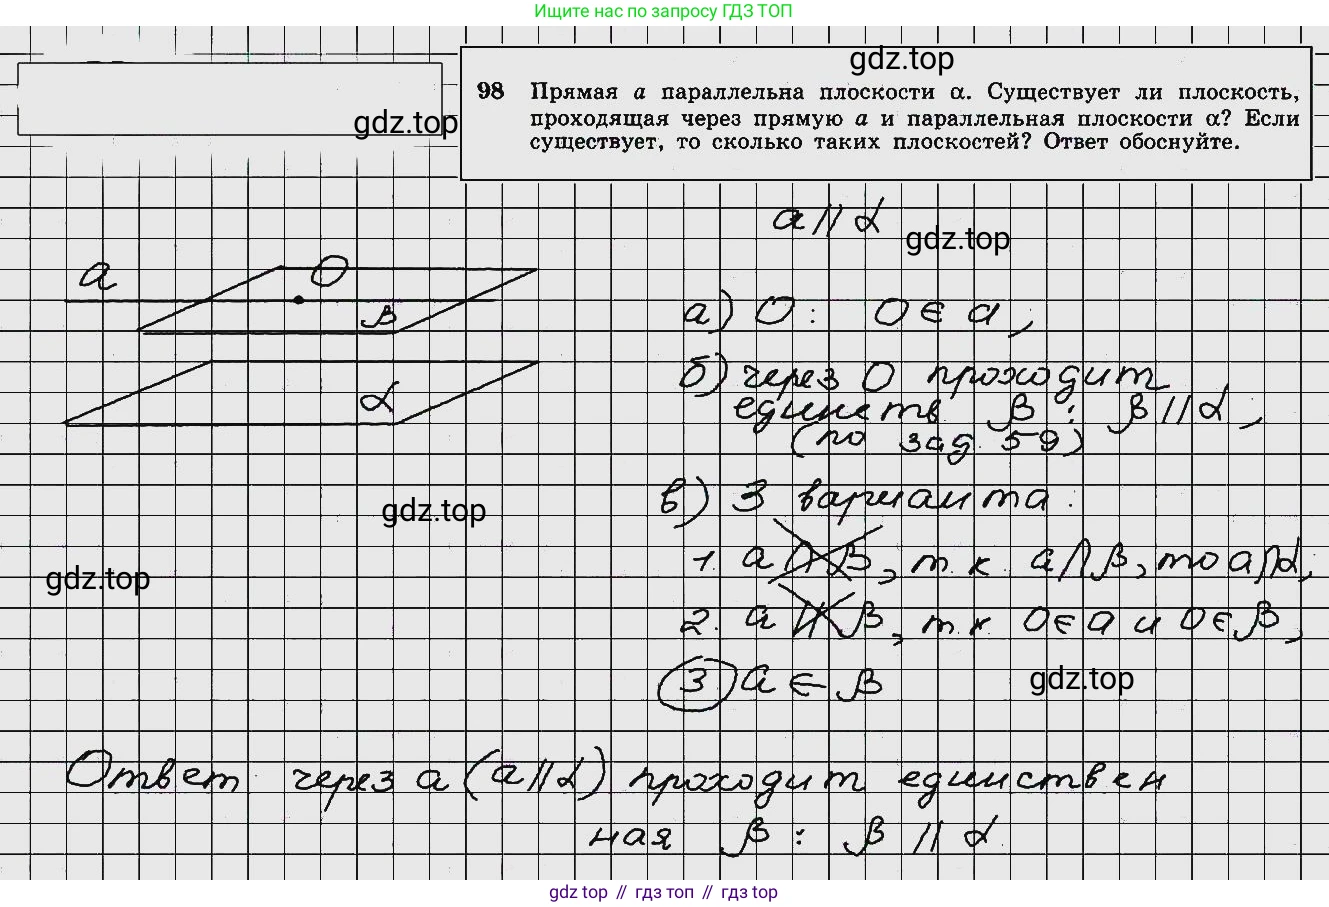 Ищите нас по запросу ГДЗ ТОП
gdz.top
98 Прямая a параллельна плоскости α. Существует ли плоскость,
проходящая через прямую a и параллельная плоскости α? Если
существует, то сколько таких плоскостей? Ответ обоснуйте.
gdz.top
a // α
gdz.top
a
O
β
α
а) O : O ∈ a ,
б) через O проходит
единств β : β // α ,
(по зад. 59)
gdz.top
в) 3 варианта:
gdz.top
1. a ∩ β, т.к. a ∩ β, то a ∩ α,
2. a // β, т.к. O ∈ a и O ∈ β,
gdz.top
3) a ∈ β
Ответ через a (a // α) проходит единствен
ная β : β // α
gdz top // гдз топ // gdz top